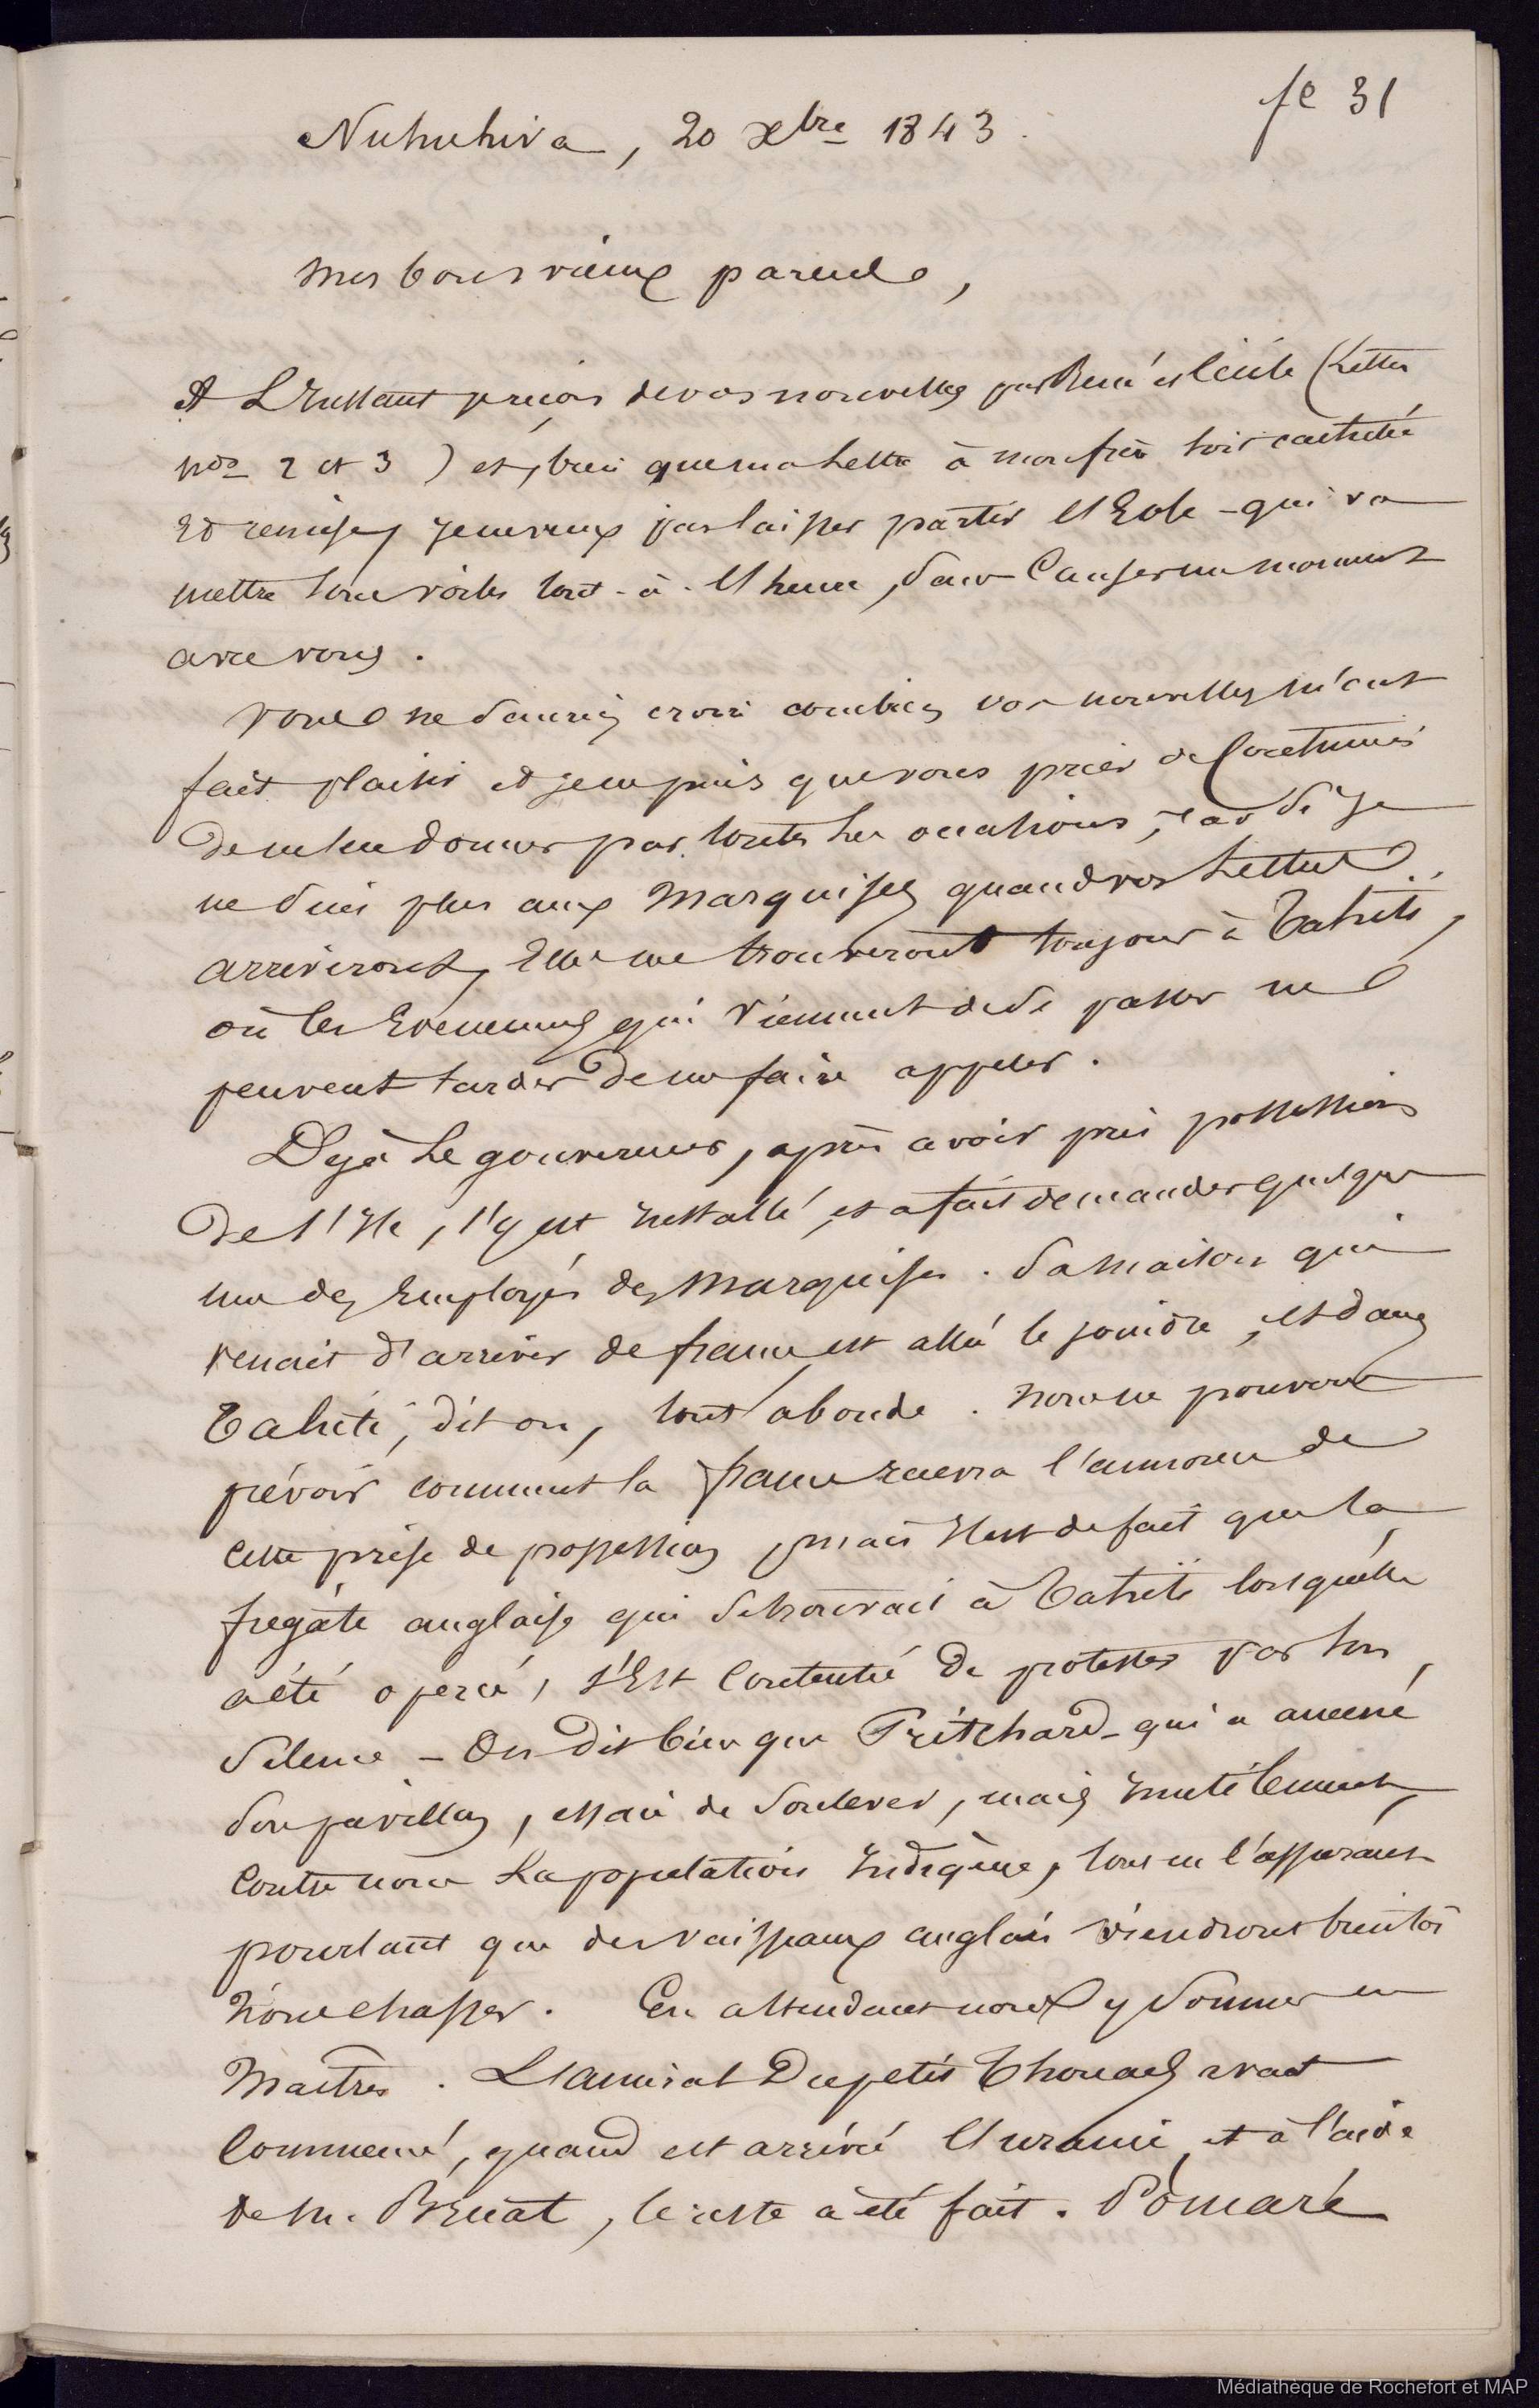 fe 31
Nuhuhiva, 20 Xbre 1843.
Mes bons vieux parents,
A L'Instant je reçois de vos nouvelles par René et Cécile (Lettres
nos 2 et 3) et, bien que ma Lettre à mon frère soit cachetée
Et remise, je ne veux pas laisser partir l'Eole - qui va
mettre sous voiles tout-à-l'heure, sans Causer un moment
avec vous.
Vous ne sauriez croire combien vos nouvelles m'ont
fait plaisir et je ne puis que vous prier de Continuer
De m'en donner par toutes les occasions, car si je
ne suis plus aux Marquises quand vos Lettres
arriveront, Elles me trouveront toujours à Tahiti,
où les Evenemens qui viennent de se passer ne
peuvent tarder De me faire appeler.
Dejà Le gouverneur, après avoir pris possession
De l'Ile, s'y est Installé, et a fait demander quelques
uns des Employés des Marquises. Sa Maison qui
venait d'arriver de france est allé le joindre, et dans
Tahiti, dit on, tout abonde. Nous ne pouvons
prévoir comment la france recevra l'annonce de
Cette prise de possession, mais Il est de fait que la
fregate anglaise qui se trouvait à Tahiti lorsqu'elle
a été operée, s'Est Contentée De protester par son
Silence - On Dit bien que Pritchard - qui a amené
son pavillon, essaie de Soulever, mais Inutilement,
Contre nous La population Indigène, tout en l'assurant
pourtant que des vaisseaux anglais viendront bientôt
nous chasser. En attendant nous y sommes en
Maitres. L'amiral Dupetit Thouars avait
Commencé, quand est arrivé l'uranie, et à l'aide
de M. Bruat, le reste a été fait. Pomaré
Médiathèque de Rochefort et MAP